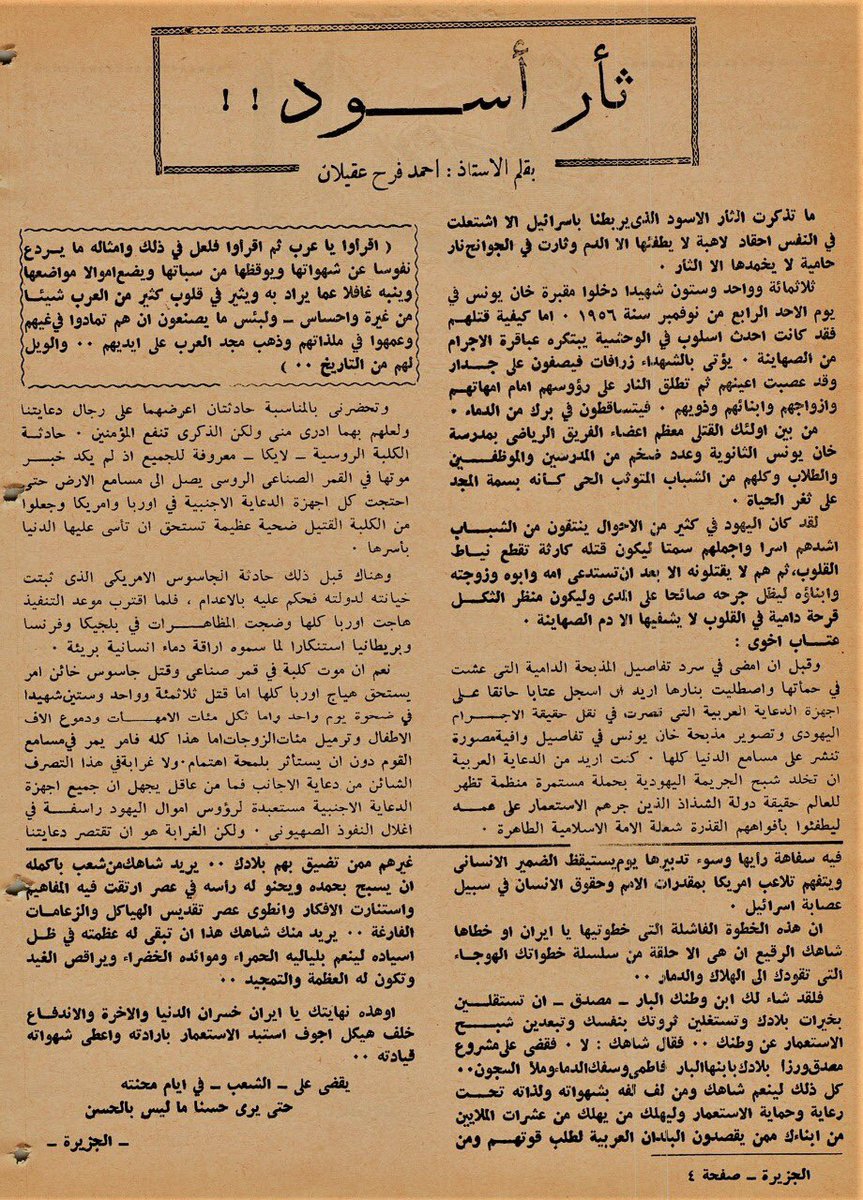 ثأر أســـود !!
بقلم الاستاذ : احمد فرح عقيلان
ما تذكرت الثأر الاسود الذى يربطنا باسرائيل الا اشتعلت
في النفس احقاد لاهبة لا يطفئها الا الدم وثارت في الجوانح نار
حامية لا يخمدها الا الثأر ٠
ثلاثمائة وواحد وستون شهيدا دخلوا مقبرة خان يونس في
يوم الاحد الرابع من نوفمبر سنة ١٩٥٦ ٠ اما كيفية قتلهم
فقد كانت احدث اسلوب في الوحشية يبتكره عباقرة الاجرام
من الصهاينة ٠ يؤتى بالشهداء زرافات فيصفون على جدار
وقد عصبت اعينهم ثم تطلق النار على رؤوسهم امام امهاتهم
وازواجهم وابنائهم وذويهم ٠ فيتساقطون في برك من الدماء ٠
من بين اولئك القتلى معظم اعضاء الفريق الرياضى بمدرسة
خان يونس الثانوية وعدد ضخم من المدرسين والموظفين
والطلاب وكلهم من الشباب المتوثب الحى كأنه بسمة المجد
على ثغر الحياة ٠
لقد كان اليهود في كثير من الاحوال ينتقون من الشباب
اشدهم اسرا واجملهم سمتا ليكون قتله كارثة تقطع نياط
القلوب، ثم هم لا يقتلونه الا بعد ان تستدعى امه وابوه وزوجته
وابناؤه ليظل جرحه صائحا على المدى وليكون منظر الثكل
قرحة دامية في القلوب لا يشفيها الا دم الصهاينة ٠
عتاب اخوى :
وقبل ان امضى في سرد تفاصيل المذبحة الدامية التى عشت
في حمأتها واصطليت بنارها اريد ان اسجل عتابا حانقا على
اجهزة الدعاية العربية التى قصرت في نقل حقيقة الاجرام
اليهودى وتصوير مذبحة خان يونس في تفاصيل وافية مصورة
تنشر على مسامع الدنيا كلها ٠ كنت اريد من الدعاية العربية
ان تخلد شبح الجريمة اليهودية بحملة مستمرة منظمة تظهر
للعالم حقيقة دولة الشذاذ الذين جرهم الاستعمار على عمد
ليطفئوا بأفواههم القذرة شعلة الامة الاسلامية الطاهرة ٠
( اقرأوا يا عرب ثم اقرأوا فلعل في ذلك وامثاله ما يردع
نفوسا عن شهواتها ويوقظها من سباتها ويضع اموالا مواضعها
وينبه غافلا عما يراد به ويثير في قلوب كثير من العرب شيئا
من غيرة واحساس – ولبئس ما يصنعون ان هم تمادوا في غيهم
وعمهوا في ملذاتهم وذهب مجد العرب على ايديهم ٠٠ والويل
لهم من التاريخ ٠٠ )
وتحضرنى بالمناسبة حادثتان اعرضهما على رجال دعايتنا
ولعلهم بهما ادرى منى ولكن الذكرى تنفع المؤمنين ٠ حادثة
الكلبة الروسية – لايكا – معروفة للجميع اذ لم يكد خبر
موتها في القمر الصناعى الروسى يصل الى مسامع الارض حتى
احتجت كل اجهزة الدعاية الاجنبية في اوربا وامريكا وجعلوا
من الكلبة القتيل ضحية عظيمة تستحق ان تأسى عليها الدنيا
بأسرها ٠
وهناك قبل ذلك حادثة الجاسوس الامريكى الذى ثبتت
خيانته لدولته فحكم عليه بالاعدام ، فلما اقترب موعد التنفيذ
هاجت اوربا كلها وضجت المظاهرات في بلجيكا وفرنسا
وبريطانيا استنكارا لما سموه اراقة دماء انسانية بريئة ٠
نعم ان موت كلبة في قمر صناعى وقتل جاسوس خائن امر
يستحق هياج اوربا كلها اما قتل ثلاثمئة وواحد وستين شهيدا
في ضحوة يوم واحد واما ثكل مئات الامهات ودموع الاف
الاطفال وترميل مئات الزوجات اما هذا كله فامر يمر في مسامع
القوم دون ان يستأثر بلمحة اهتمام ٠ ولا غرابة في هذا التصرف
الشائن من دعاية الاجانب فما من عاقل يجهل ان جميع اجهزة
الدعاية الاجنبية مستعبدة لرؤوس اموال اليهود راسفة في
اغلال النفوذ الصهيونى ٠ ولكن الغرابة هو ان تقتصر دعايتنا
فيه سفاهة رأيها وسوء تدبيرها يوم يستيقظ الضمير الانسانى
ويتفهم تلاعب امريكا بمقدرات الامم وحقوق الانسان في سبيل
عصابة اسرائيل ٠
ان هذه الخطوة الفاشلة التى خطوتيها يا ايران او خطاها
شاهك الرقيع ان هى الا حلقة من سلسلة خطواتك الهوجاء
التى تقودك الى الهلاك والدمار ٠٠
فلقد شاء لك ابن وطنك البار – مصدق – ان تستقلين
بخيرات بلادك وتستغلين ثروتك بنفسك وتبعدين شبح
الاستعمار عن وطنك ٠٠ فقال شاهك : لا ٠ فقضى على مشروع
مصدق ورزأ بلادك بابنها البار فاطمى وسفك الدماء وملأ السجون ٠٠
كل ذلك لينعم شاهك ومن لف لفه بشهواته ولذاته تحت
رعاية وحماية الاستعمار وليهلك من يهلك من عشرات الملايين
من ابناءك ممن يقصدون البلدان العربية لطلب قوتهم ومن
غيرهم ممن تضيق بهم بلادك ٠٠ يريد شاهك من شعب بأكمله
ان يسبح بحمده ويحنو له رأسه في عصر ارتقت فيه المفاهيم
واستنارت الافكار وانطوى عصر تقديس الهياكل والزعامات
الفارغة ٠٠ يريد منك شاهك هذا ان تبقى له عظمته في ظل
اسياده لينعم بلياليه الحمراء وموائده الخضراء ويراقص الغيد
وتكون له العظمة والتمجيد ٠٠
اوهذه نهايتك يا ايران خسران الدنيا والاخرة والاندفاع
خلف هيكل اجوف استبد الاستعمار بارادته واعطى شهواته
قيادته ٠٠
يقضى على – الشعب – في ايام محنته
حتى يرى حسنا ما ليس بالحسن
– الجزيرة –
الجزيرة – صفحة ٤